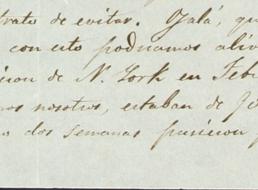 trato de evitar. Ojalá, qu
con esto podriamos aliv
cion de N. York en Feb
ros nosotros, estaban de
o dos semanas pusieron